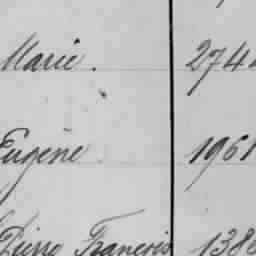 Marie. 274
Eugène 1961
Pierre François 138